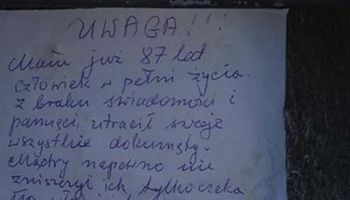 UWAGA!!!
Mam już 87 lat
człowiek w pełni życia.
Z braku świadomości i
pamięci, utracił swoje
wszystkie dokumęty.
Mądry napewno nie
zniszczył ich, tylko czeka